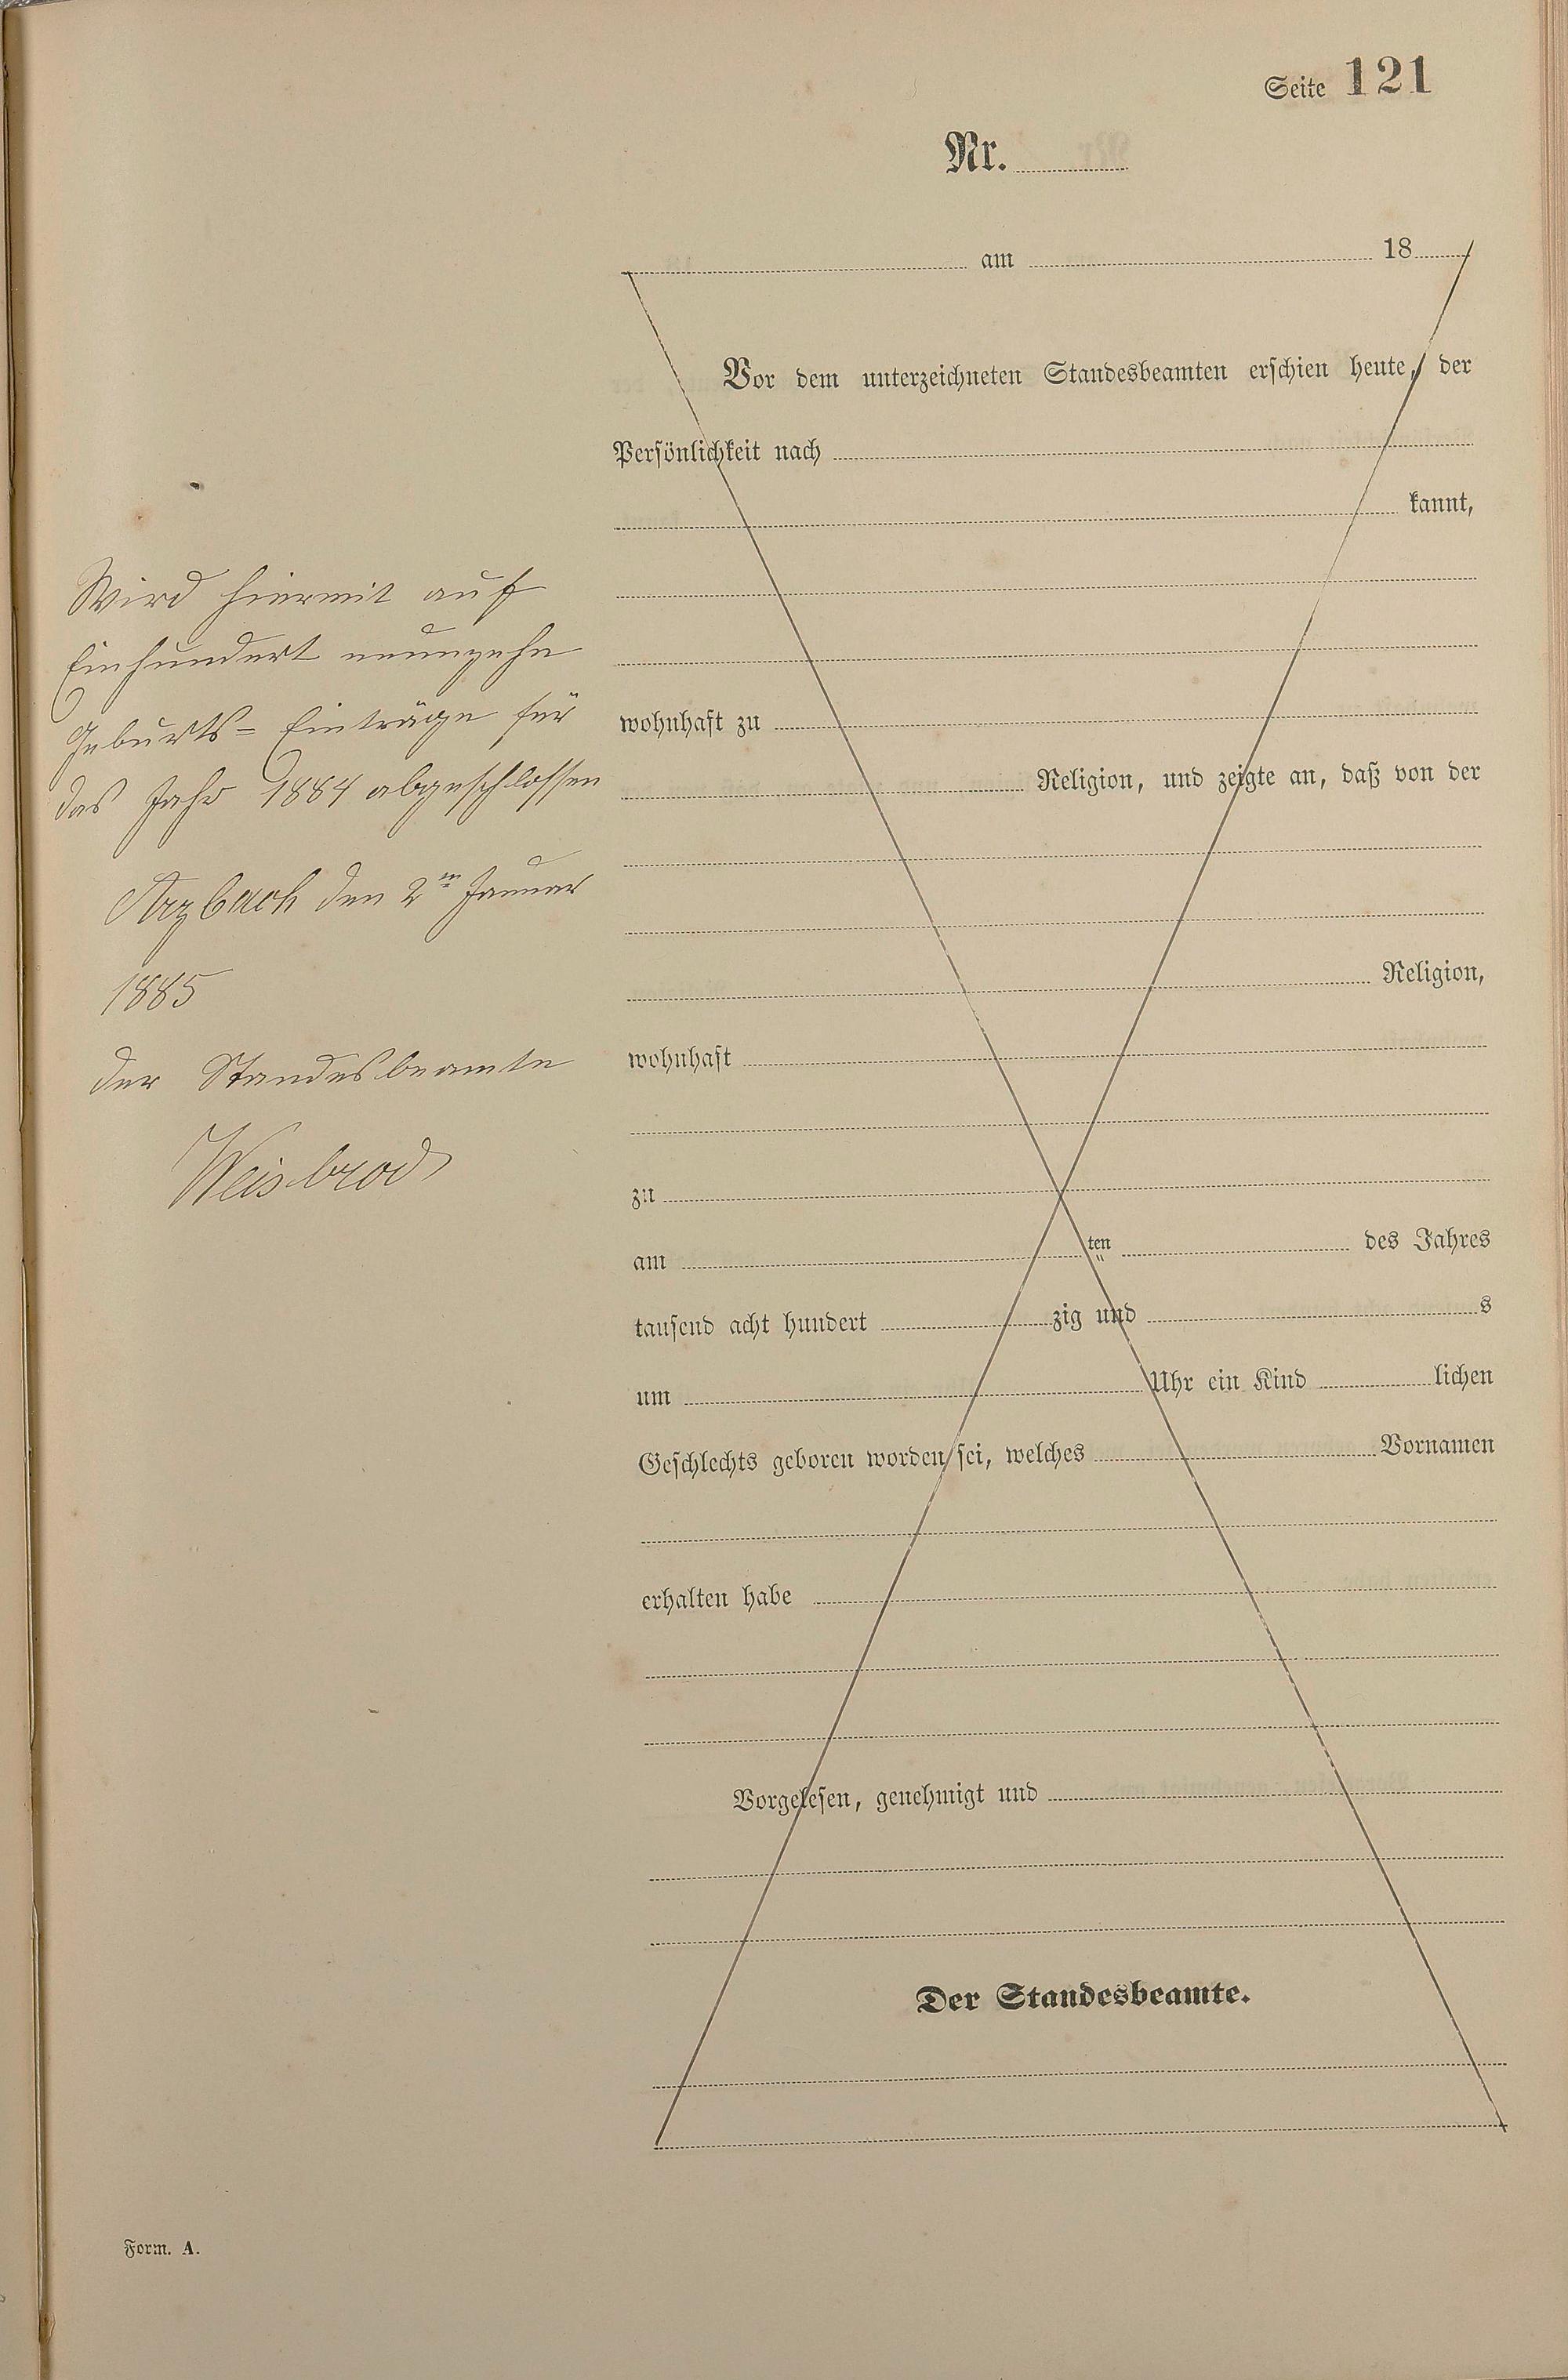 Seite 121
Nr.
am 18
Vor dem unterzeichneten Standesbeamten erschien heute, der
Persönlichkeit nach
kannt,
wohnhaft zu
Religion, und zeigte an, daß von der
Religion,
wohnhaft
zu
am ten des Jahres
tausend acht hundert zig und s
um Uhr ein Kind lichen
Geschlechts geboren worden sei, welches Vornamen
erhalten habe
Vorgelesen, genehmigt und
Der Standesbeamte.
Wird hiermit auf
Einhundert neunzehn
Geburts= Einträge für
das Jahr 1884 abgeschlossen
Arzbach den 2ten Januar
1885
der Standesbeamte
Weisbrod
Form. A.